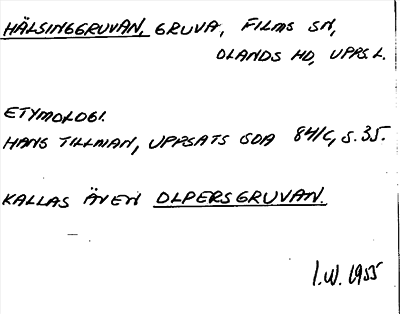 HÄLSINGGRUVAN, GRUVA, FILMS SN,
OLANDS HD, UPPS. L.
ETYMOLOGI.
HANS TILLMAN, UPPSATS GDA 84/6, S. 35.
KALLAS ÄVEN OLPERSGRUVAN.
I.W. 1955